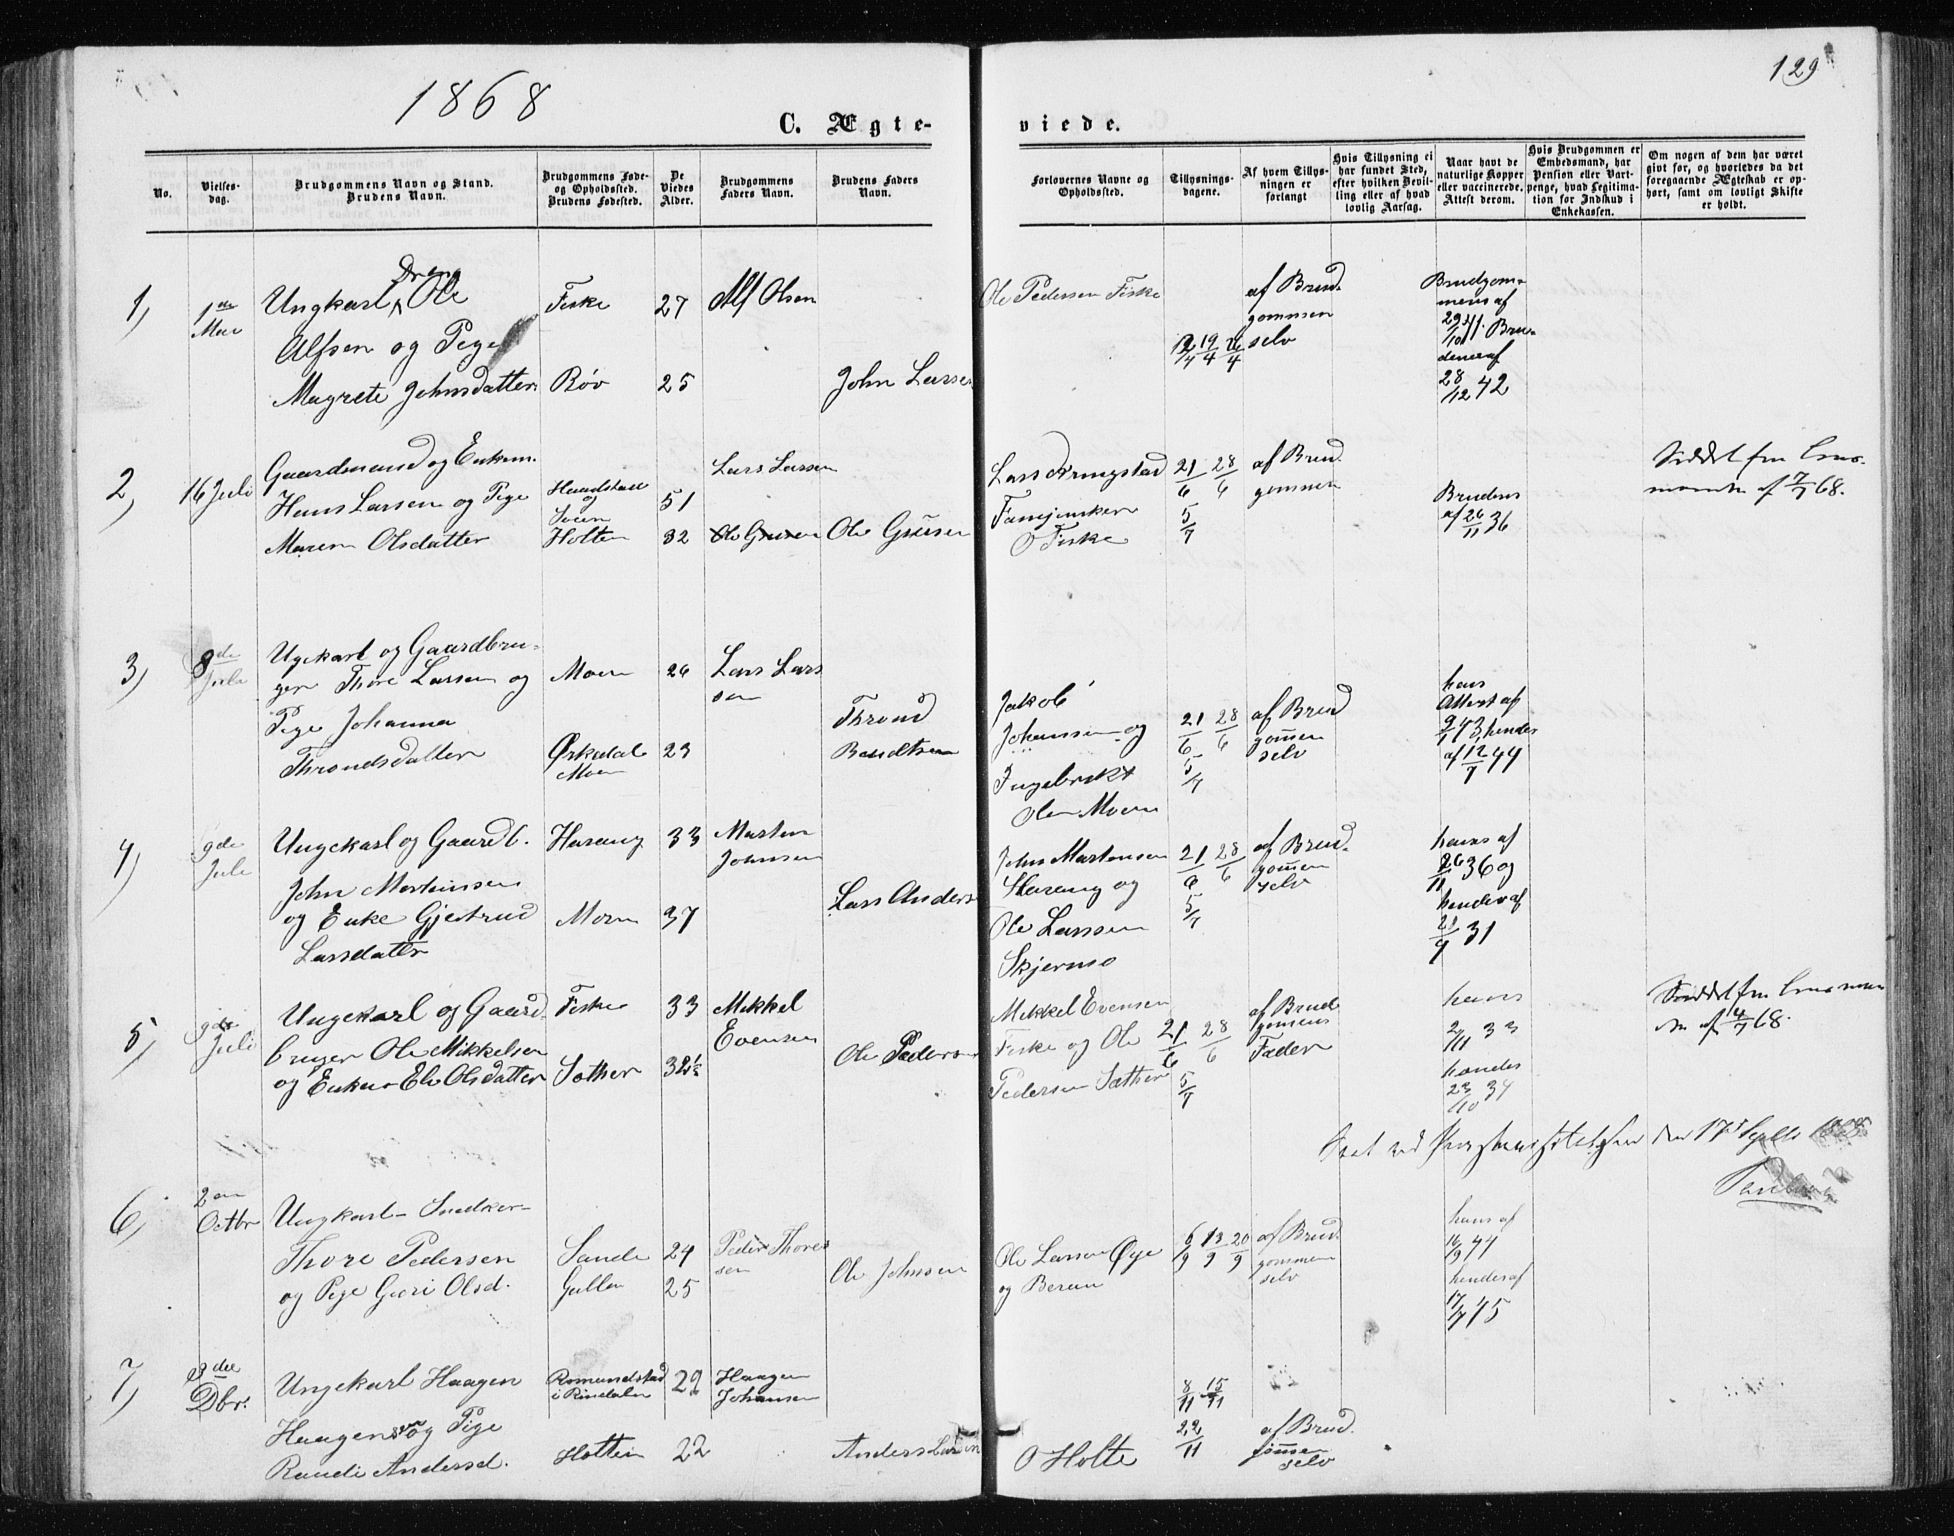 1868
129
C. Ægte-
viede.
No.
Vielses-
dag.
Brudgommens Navn og Stand.
Brudens Navn.
Brudgommens Føde-
og Opholdssted.
Brudens Fødested.
De
Viedes
Alder.
Brudgommens
Faders Navn.
Brudens Faders
Navn.
Forlovernes Navne og
Opholdssted.
Tillysnings-
dagene.
Af hvem Tillys-
ningen er
forlangt
Hvis Tillysning ei
har fundet Sted,
efter hvilken Bevil-
ling eller af hvad
lovlig Aarsag.
Naar havt de
naturlige Kopper
eller vaccinerede.
Attest derom.
Hvis Brudgommen er
Embedsmand, har
Pension eller Vart-
penge, hvad Legitima-
tion for Indskud i
Enkekassen.
Om nogen af dem har været
givt før, og hvorledes da det
foregaaende Ægteskab er op-
hørt, samt om lovligt Skifte
er holdt.
1)
1de
Mai
Dreng
Ungkarl Ole
Alfsen og Pige
Magrete Johnsdatter
Fiske
Bøv
27
25
Alf Olsen
John Larsen
Ole Pedersen Fiske
12/4 19/4 26/4
af Brud-
gommen
selv
Brudgom-
mens af
29/10 41. Bru-
dens af
28/12 42
2)
16 Juli
Gaardmand og Enkem.
Hans Larsen og Pige
Maren Olsdatter
og
Holten
51
32
Lars Larsen
Ole Grusen
Ole Grusen
Lars
O Fiske
21/6 28/6
5/7
af Brud
gommen
Brudens
af 26/11 36
af 7/7 68.
3)
8de
Jule
Ugekarl og Gaardbru-
ger Thore Larsen og
Pige Johanna
Throndsdatter
Moen
Ørkedal
Moen
26
23
Lars Lars
sen
Thrond
Bendtsen
Jakob
Johansen og
Ingebrikt
Olsen Moen
21/6 28/6
5/7
af Brud
gomen
selv
hans
Attest af
9/1 43, hendes
af 12/7 44
4)
9de
Jule
Ungekarl og Gaardb.
John Martinsen
og Enke Gjertrud
Larsdatter
Harang
Moen
33
37
Morten
Johnsen
Lars Anders
John Martensen
Harang og
Ole Larsen
Skjermo
21/6 28/6
5/7
af Brud-
gomen
selv
hans af
26/11 36 og
hendes af
21/9 31
5)
9de
Juli
Ungekarl og Gaard
bruger Ole Mikkelsen
og Enke Eli Olsdatter
Fiske
Sæther
33
32½
Mikkel
Evensen
Ole Peders
Mikkel Evensen
Fiske og Ole
Pedersen Sæther
21/6 28/6
5/7
af Brud
gomens
Fader
hans
2/11 33
hendes
23/10 34
af 4/7 68.
den 17de Septbr 1868
6)
2den
Octbr
Ungkarl Snedker
Thore Pedersen
og Pige Guri Olsd.
Sande
Gulla
24
25
Peder Thores
sen
Ole Johnsen
Ole Larsen Øye
og
6/9 13/9 20/9
af Brud-
gommen
selv
hans af
16/9 44
hendes af
17/7 45
7)
3die
Dbr.
Ungekarl Haagen
Haagensen og Pige
Randi Andersd.
Romundstad
i Rindalen
Holten
29
22
Haagen
Johansen
Anders Larsen
O Holte
8/11 15/11
22/11
af Brud
gomen
selv